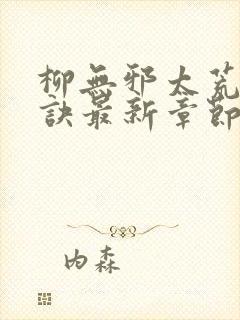 柳無邪太荒
訣最新章節
内森